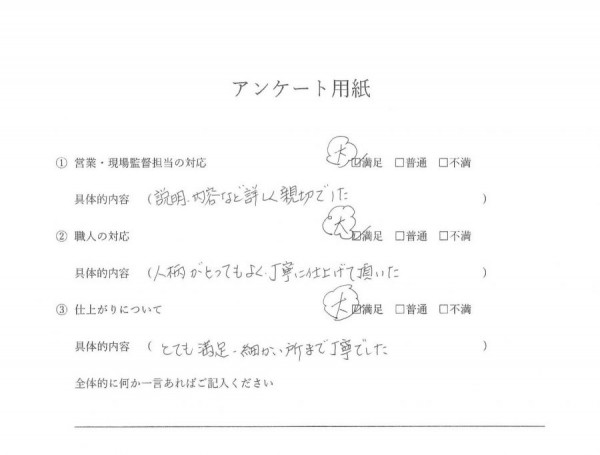 アンケート用紙
① 営業・現場監督担当の対応 大 ☑満足 □普通 □不満
具体的内容 (説明、内容など詳しく親切でした )
② 職人の対応 大 ☑満足 □普通 □不満
具体的内容 (人柄がとってもよく、丁寧に仕上げて頂いた )
③ 仕上がりについて 大 ☑満足 □普通 □不満
具体的内容 ( とても満足、細かい所まで丁寧でした )
全体的に何か一言あればご記入ください